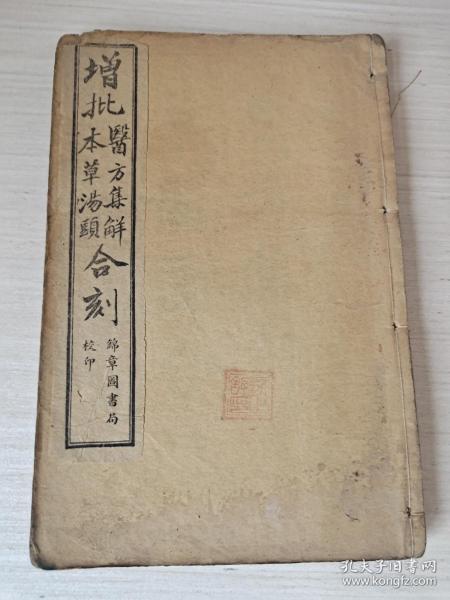 增批
醫方集解
本草湯頭
合刻
錦章圖書局
校印
孔夫子旧书网
www.kongfz.com